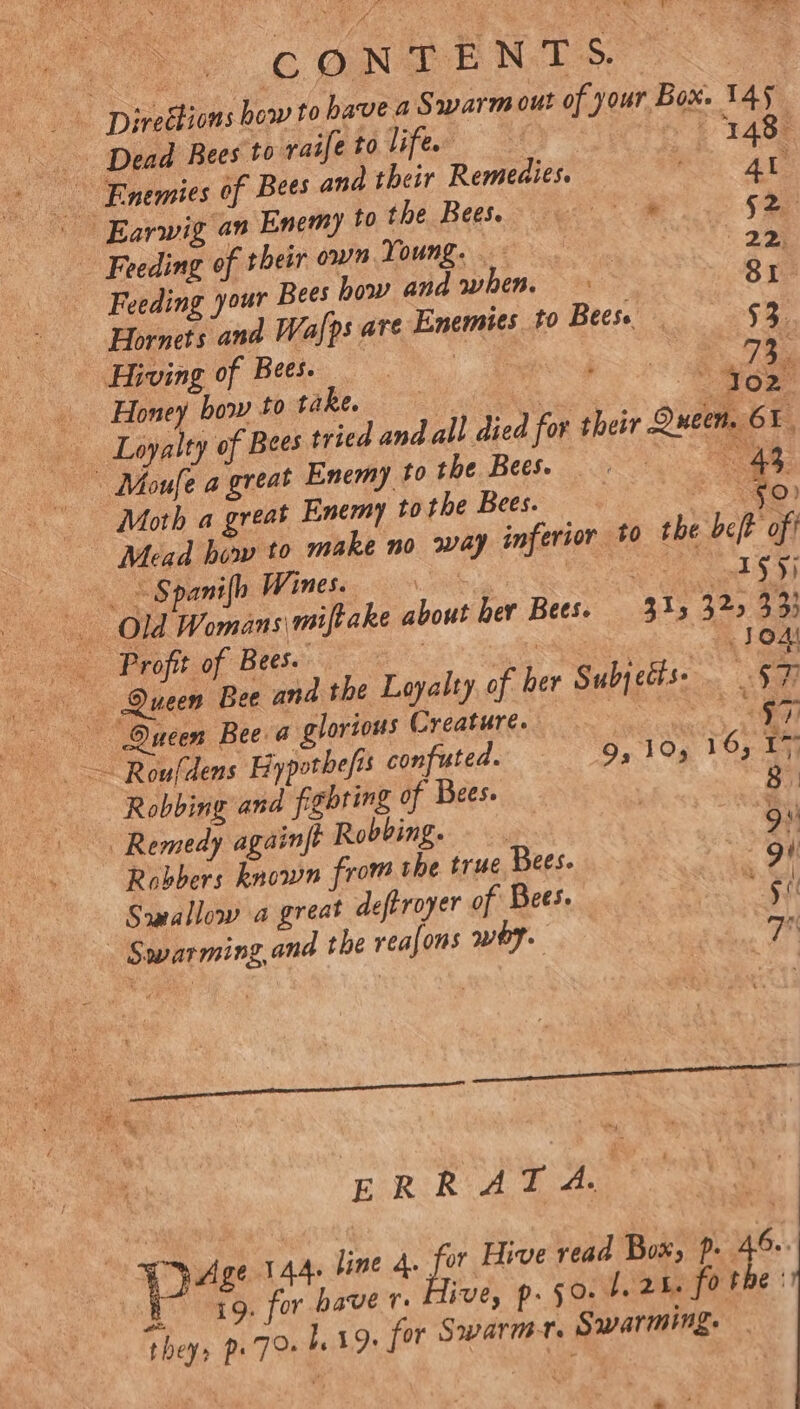 CONTENTS.
Directions how to have a Swarm out of your Box. 145
Dead Bees to raiſe to life. 148
Enemies of Bees and their Remedies. 41
Earwig an Enemy to the Bees. 52
Feeding of their own Young. 22
Feeding your Bees how and when. 81
Hornets and Waſps are Enemies to Bees. 53
Hiving of Bees. 73
Honey how to take. 102
Loyalty of Bees tried and all died for their Queen. 61
Mouſe a great Enemy to the Bees. 43
Moth a great Enemy to the Bees. 50
Mead how to make no way inferior to the beſt of
Spaniſh Wines. 155
Old Womans miſtake about her Bees. 31, 32, 33
Profit of Bees. 104
Queen Bee and the Loyalty of her Subjects. 57
Queen Bee a glorious Creature. 57
Rouſdens Hypotheſis confuted. 9, 10, 16, 17
Robbing and fighting of Bees. 8
Remedy againſt Robbing. 9
Robbers known from the true Bees. 9
Swallow a great deſtroyer of Bees. 5
Swarming and the reaſons why. 7
ERRATA.
PAge 144. line 4. for Hive read Box, p. 46.
19. for have r. Hive, p. 50. l. 21. fo the
they, p. 70. l. 19. for Swarm r. Swarming.